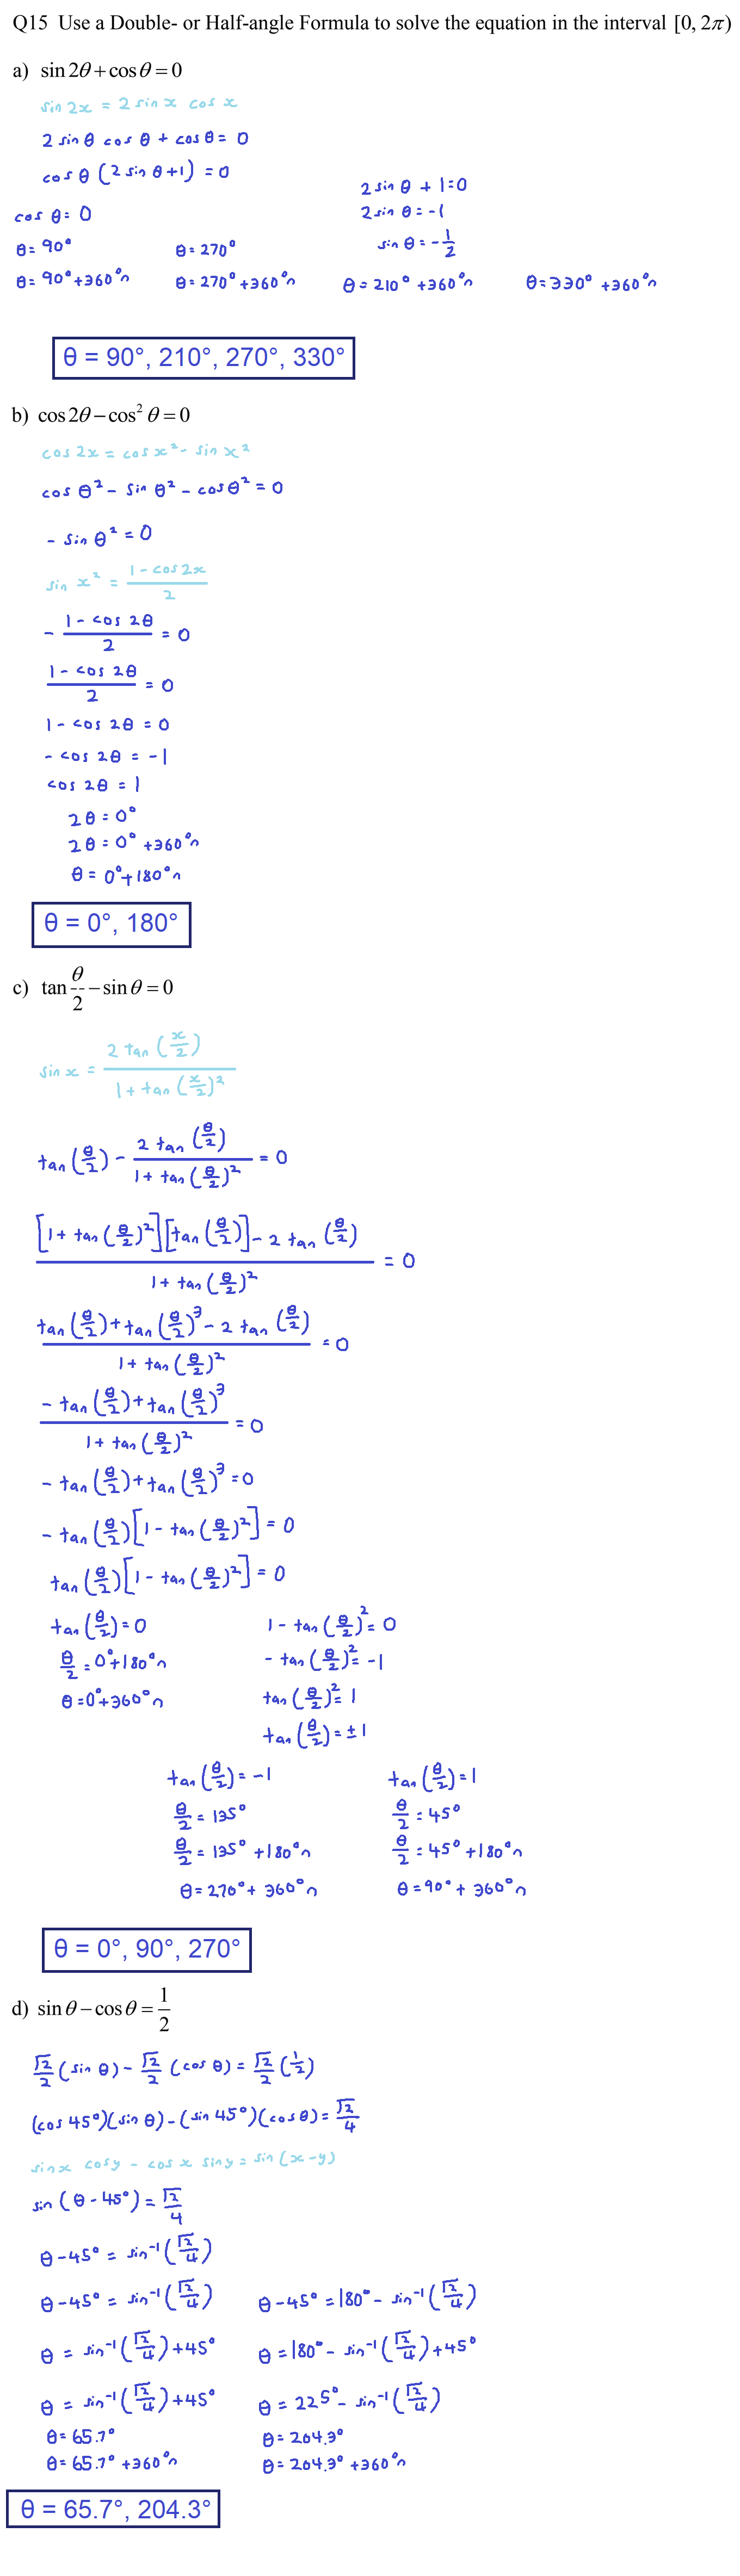 Q15 Use a Double- or Half-angle Formula to solve the equation in the interval [0, 2π)
a) sin 2θ + cos θ = 0
sin 2x = 2 sin x cos x
2 sin θ cos θ + cos θ = 0
cos θ (2 sin θ + 1) = 0
cos θ = 0
θ = 90° θ = 270°
θ = 90° + 360°n θ = 270° + 360°n
2 sin θ + 1 = 0
2 sin θ = -1
sin θ = -1/2
θ = 210° + 360°n θ = 330° + 360°n
θ = 90°, 210°, 270°, 330°
b) cos 2θ − cos² θ = 0
cos 2x = cos x² - sin x²
cos θ² - sin θ² - cos θ² = 0
- sin θ² = 0
sin x² = (1 - cos 2x)/2
- (1 - cos 2θ)/2 = 0
(1 - cos 2θ)/2 = 0
1 - cos 2θ = 0
- cos 2θ = -1
cos 2θ = 1
2θ = 0°
2θ = 0° + 360°n
θ = 0° + 180°n
θ = 0°, 180°
c) tan θ/2 − sin θ = 0
sin x = 2 tan (x/2) / 1 + tan (x/2)²
tan (θ/2) - 2 tan (θ/2) / 1 + tan (θ/2)² = 0
[1 + tan (θ/2)²][tan (θ/2)] - 2 tan (θ/2) / 1 + tan (θ/2)² = 0
tan (θ/2) + tan (θ/2)³ - 2 tan (θ/2) / 1 + tan (θ/2)² = 0
- tan (θ/2) + tan (θ/2)³ / 1 + tan (θ/2)² = 0
- tan (θ/2) + tan (θ/2)³ = 0
- tan (θ/2)[1 - tan (θ/2)²] = 0
tan (θ/2)[1 - tan (θ/2)²] = 0
tan (θ/2) = 0
θ/2 = 0° + 180°n
θ = 0° + 360°n
1 - tan (θ/2)² = 0
- tan (θ/2)² = -1
tan (θ/2)² = 1
tan (θ/2) = ±1
tan (θ/2) = -1
θ/2 = 135°
θ/2 = 135° + 180°n
θ = 270° + 360°n
tan (θ/2) = 1
θ/2 = 45°
θ/2 = 45° + 180°n
θ = 90° + 360°n
θ = 0°, 90°, 270°
d) sin θ − cos θ = 1/2
√2/2 (sin θ) - √2/2 (cos θ) = √2/2 (1/2)
(cos 45°)(sin θ) - (sin 45°)(cos θ) = √2/4
sin x cos y - cos x sin y = sin (x-y)
sin (θ - 45°) = √2/4
θ - 45° = sin⁻¹(√2/4)
θ - 45° = sin⁻¹(√2/4) θ - 45° = 180° - sin⁻¹(√2/4)
θ = sin⁻¹(√2/4) + 45° θ = 180° - sin⁻¹(√2/4) + 45°
θ = sin⁻¹(√2/4) + 45° θ = 225° - sin⁻¹(√2/4)
θ = 65.7° θ = 204.3°
θ = 65.7° + 360°n θ = 204.3° + 360°n
θ = 65.7°, 204.3°